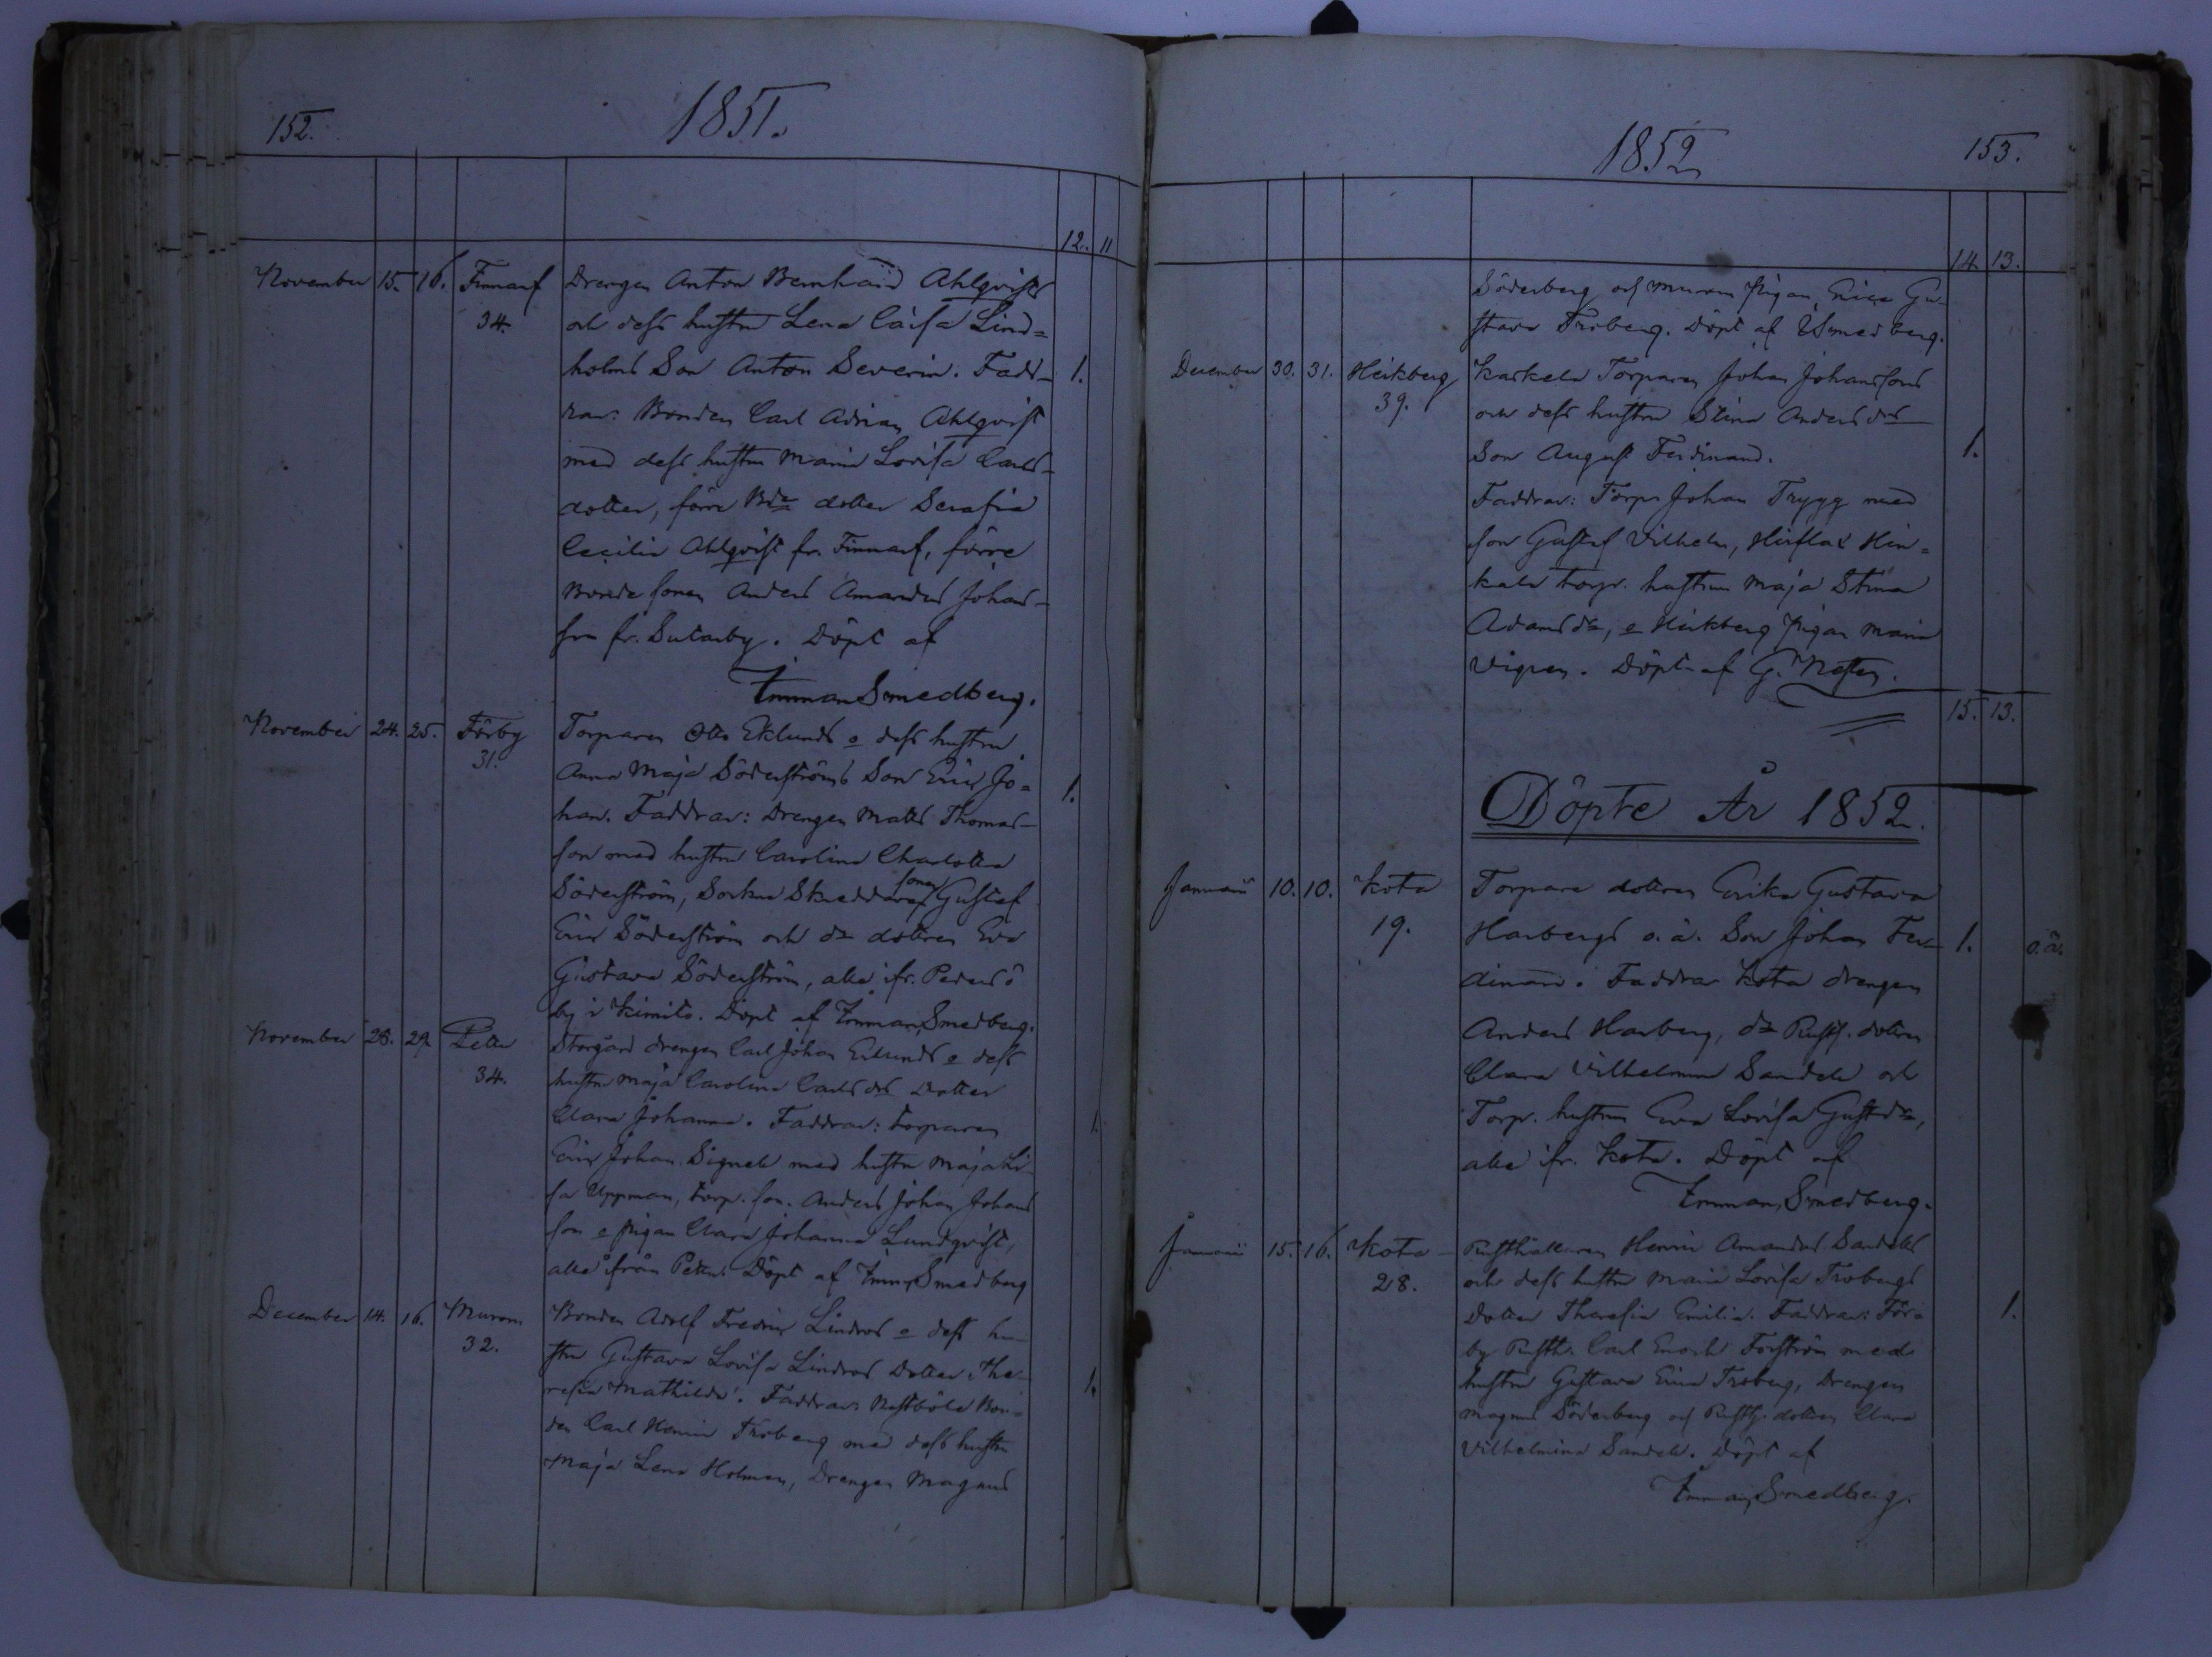 152.
1851.
12. 11
November 15. 16. Finnarf Drengen Anton Bernhard Ahlqvists
34. och dess hustru Lena Caisa Lind=
holms Son Anton Severin. Fadd- 1.
rar: Bonden Carl Adrian Ahlqvist
med dess hustru Maria Lovisa Carls-
dotter, förre Bde dotter Serafia
Cecilia Ahlqvist fr. Finnarf, förre
Bonde sonen Anders Amandus Johans-
son fr. Sutarby. Döpt af
Emman Smedberg.
November 24. 25. Förby Torparen Otto Eklunds o dess hustru
31. Anna Maja Söderströms Son Eric Jo= 1.
han. Faddrar: Drengen Matts Thomas-
son med hustru Carolina Charlotta
Söderström, Sockne Skreddare sonen Gustaf
Eric Söderström och do dottren Eva
Gustava Söderström, alla ifr. Pedersö
by i Kimito. Döpt af Emman Smedberg.
November 28. 29 Pettu Storgård drengen Carl Johan Eklunds o dess
34. hustru Maja Carolina Carlsdrs Dotter
Clara Johanna. Faddrar: torparen 1.
Eric Johan Signell med hustru Maja Li-
sa Uppman, torp. son. Anders Johan Johans
son o pigan Clara Johanna Lundqvist,
alla ifrån Pettu. Döpt af Emman Smedberg
December 14. 16. Murom Bonden Adolf Fredric Lindros o dess hu-
32. stru Gustava Lovisa Lindros Dotter The-
resia Mathilda. Faddrar: Nestböle Bon- 1.
den Carl Henric Froberg med dess hustru
Maja Lena Holman, Drengen Magnus
1852
153.
14. 13.
Söderberg och Murom Pigan Erica Gu-
stava Froberg. Döpt af ESmedberg.
December 30. 31. Heikberg Karkela Torparen Johan Johanssons
39. och dess hustru Stina Andersdrs
Son August Ferdinand. 1.
Faddrar: Torpr Johan Trygg med
son Gustaf Vilhelm, Hin=
kala torpr. hustrun Maja Stina
Adamsdr, o Heikberg Pigan Maria
Vigren. Döpt af G.
15. 13.
Döpte År 1852.
Januarii 10. 10. Kota Torpare dottren Erika Gustava
19. Harbergs o.ä. Son Johan Fer- 1. o.ä.
dinand. Faddrar Kota drengen
Anders Harberg, do Rusth. dottren
Clara Vilhelmina Sandell och
Torpr. hustrun Eva Lovisa Gustdr,
alla ifr. Kota. Döpt af
Emman Smedberg.
Januarii 15. 16. Kota Rusthållaren Henric Amandus Sandells
28. och dess hustru Maria Lovisa Frobergs
Dotter Theresia Emilia. Faddrar: För= 1.
by Rusth. Carl Enoch Forström med
hustru Gustava Erica Froberg, Drengen
Magnus Söderberg och Rusth. dottren Clara
Vilhelmina Sandell. Döpt af
Emman Smedberg.